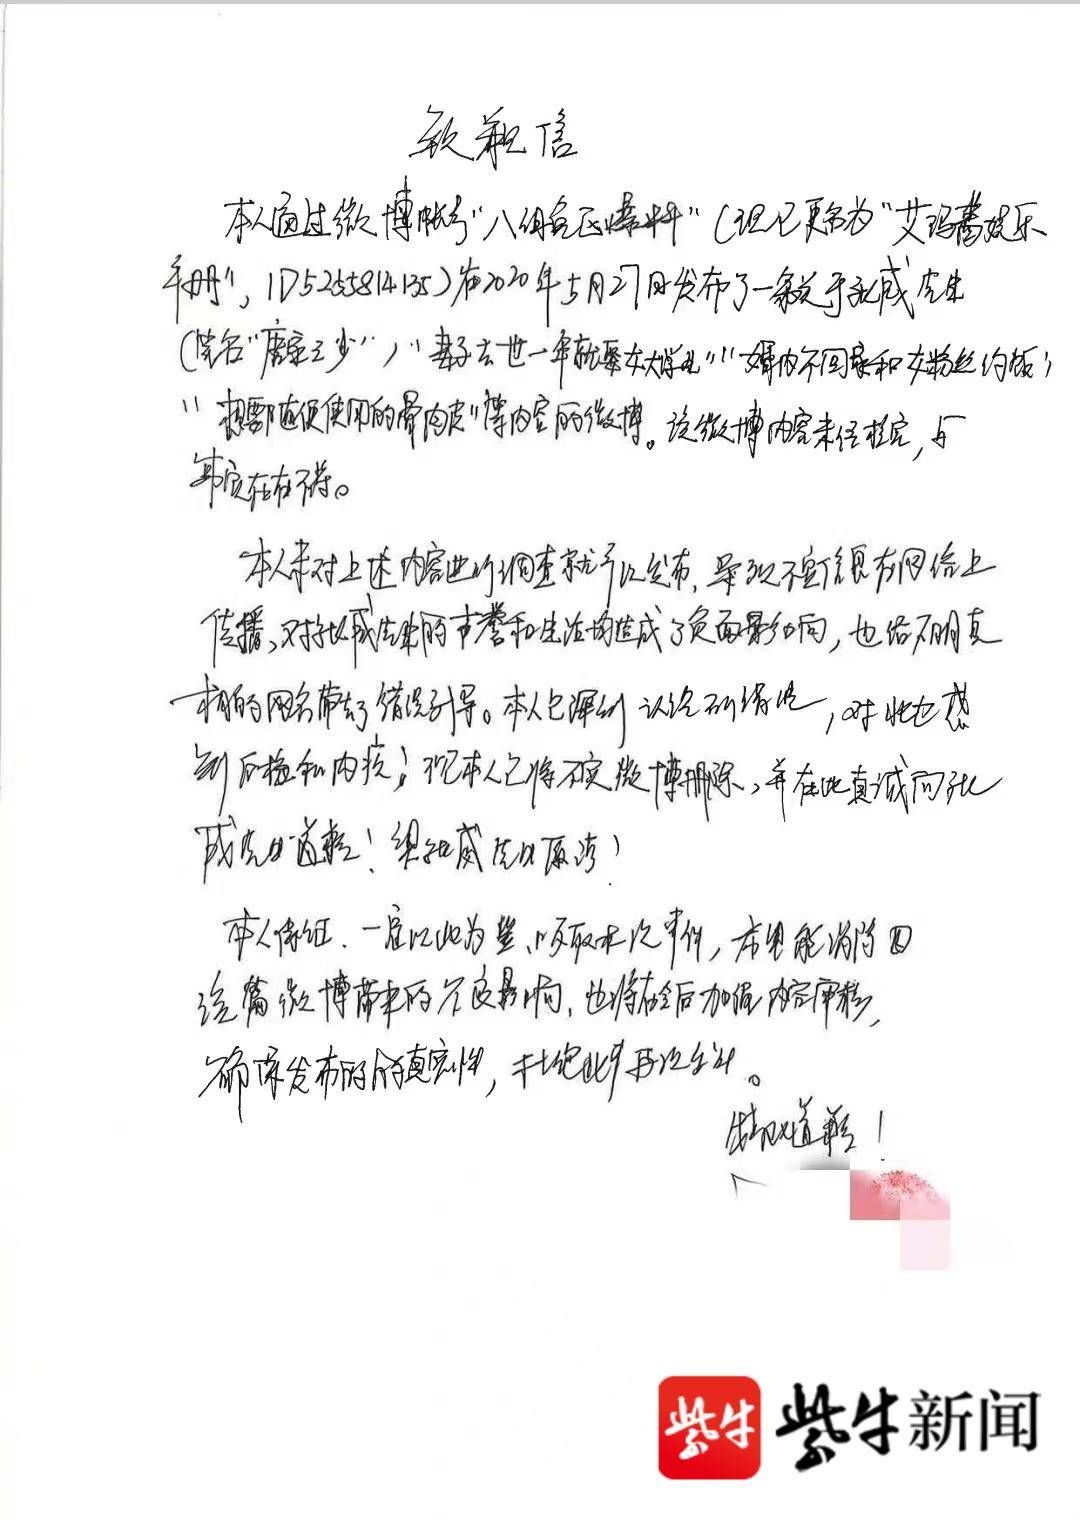 致歉信
本人通过微博帐号"八组兔区爆料"（现已更名为"艾玛酱娱乐
手册"，ID5255814135）在2020年5月27日发布了一条关于张威先生
（艺名"唐家三少"）"妻子去世一年就娶女大学生""婚内不回家和女粉丝约饭"
"想要随便使用的骨肉皮"等内容的微博。该微博内容未经核实，与
事实存在不符。
本人未对上述内容进行调查就予以发布，导致不实信息在网络上
传播，对张威先生的声誉和生活均造成了负面影响，也给不明真
相的网名带去了错误引导。本人已深刻认识到错误，对此也感
到后悔和内疚；现本人已将不实微博删除，并在此真诚向张
威先生道歉！望张威先生原谅！
本人保证，一定以此为鉴，吸取本次事件，希望能消除因
这篇微博带来的不良影响，也将在今后加强内容审核，
确保发布的内容真实性，杜绝此事再次发生。
特此道歉！
紫牛 紫牛新闻